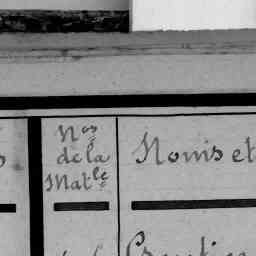 Nos
de la
Matle
Noms et